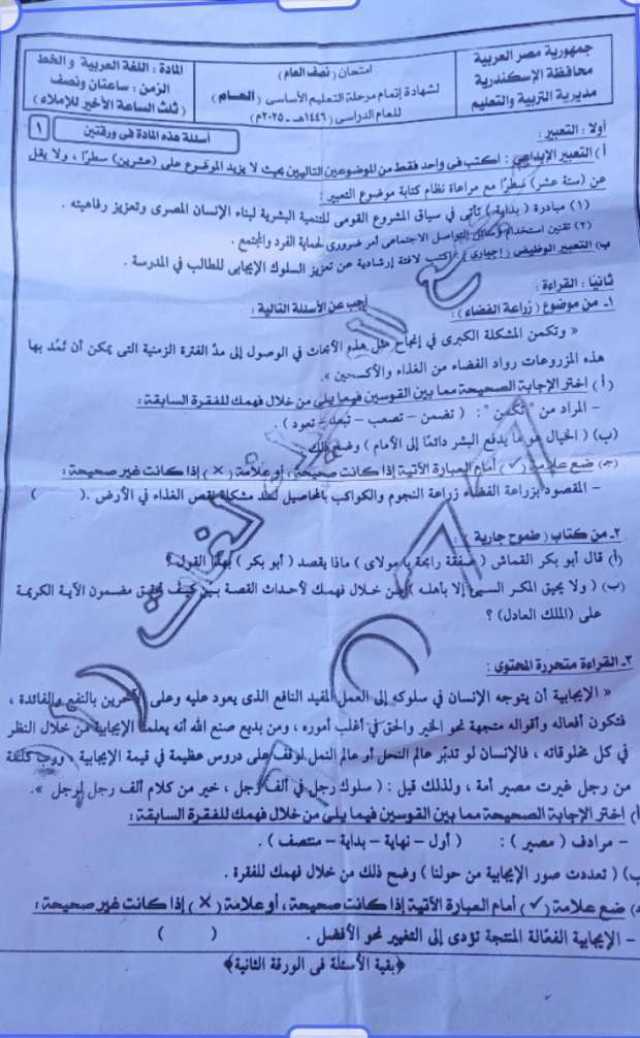 جمهورية مصر العربية
محافظة الإسكندرية
مديرية التربية والتعليم
امتحان (نصف العام)
لشهادة إتمام مرحلة التعليم الأساسى (العام)
للعام الدراسى (١٤٤٦هـ - ٢٠٢٥م)
المادة : اللغة العربية والخط
الزمن : ساعتان ونصف
(ثلث الساعة الأخير للإملاء)
أسئلة هذه المادة فى ورقتين
١
أولا : التعبير :
أ) التعبير الإبداعي : اكتب فى واحد فقط من الموضوعين التاليين بحيث لا يزيد الموضوع على (عشرين) سطرًا ، ولا يقل
عن (ستة عشر) سطرًا مع مراعاة نظام كتابة موضوع التعبير :
(١) مبادرة (بداية) تأتى في سياق المشروع القومى للتنمية البشرية لبناء الإنسان المصرى وتعزيز رفاهيته .
(٢) تقنين استخدام وسائل التواصل الاجتماعى أمر ضرورى لحماية الفرد والمجتمع .
ب) التعبير الوظيفى (إجبارى) : اكتب لافتة إرشادية عن تعزيز السلوك الإيجابى للطالب في المدرسة .
ثانيًا : القراءة :
أجب عن الأسئلة التالية :
١ـ من موضوع (زراعة الفضاء) :
« وتكمن المشكلة الكبرى في إنجاح مثل هذه الأبحاث في الوصول إلى مدّ الفترة الزمنية التى يمكن أن تُمد بها
هذه المزروعات رواد الفضاء من الغذاء والأكسجين ».
(أ) اختر الإجابة الصحيحة مما بين القوسين فيما يلى من خلال فهمك للفقرة السابقة :
- المراد من "تكمن" : (تضمن – تصعب – تبعد – تعود) .
(ب) (الخيال هو ما يدفع البشر دائمًا إلى الأمام) وضح ذلك
(جـ) ضع علامة (✓) أمام العبارة الآتية إذا كانت صحيحة ، أو علامة (✗) إذا كانت غير صحيحة :
- المقصود بزراعة الفضاء زراعة النجوم والكواكب بالمحاصيل لسد مشكلة نقص الغذاء في الأرض . ( )
٢ـ من كتاب (طموح جارية) :
(أ) قال أبو بكر القماش (صفقة رابحة يا مولاى) ماذا يقصد (أبو بكر) بهذا القول ؟
(ب) (ولا يحيق المكر السيئ إلا بأهله) من خلال فهمك لأحداث القصة بين كيف تحقق مضمون الآية الكريمة
على (الملك العادل) ؟
٣ـ القراءة متحررة المحتوى :
« الإيجابية أن يتوجه الإنسان في سلوكه إلى العمل المفيد النافع الذى يعود عليه وعلى الآخرين بالنفع والفائدة ،
فتكون أفعاله وأقواله متجهة نحو الخير والحق في أغلب أموره ، ومن بديع صنع الله أنه يعلمنا الإيجابية من خلال النظر
في كل مخلوقاته ، فالإنسان لو تدبّر عالم النحل أو عالم النمل لوقف على دروس عظيمة في قيمة الإيجابية ، ورب كلمة
من رجل غيرت مصير أمة ، ولذلك قيل : (سلوك رجل في ألف رجل ، خير من كلام ألف رجل لرجل ».
أ) اختر الإجابة الصحيحة مما بين القوسين فيما يلى من خلال فهمك للفقرة السابقة :
- مرادف (مصير) : (أول – نهاية – بداية – منتصف) .
ب) (تعددت صور الإيجابية من حولنا) وضح ذلك من خلال فهمك للفقرة .
ضع علامة (✓) أمام العبارة الآتية إذا كانت صحيحة ، أو علامة (✗) إذا كانت غير صحيحة :
- الإيجابية الفعّالة المنتجة تؤدى إلى التغيير نحو الأفضل . ( )
﴿بقية الأسئلة فى الورقة الثانية﴾